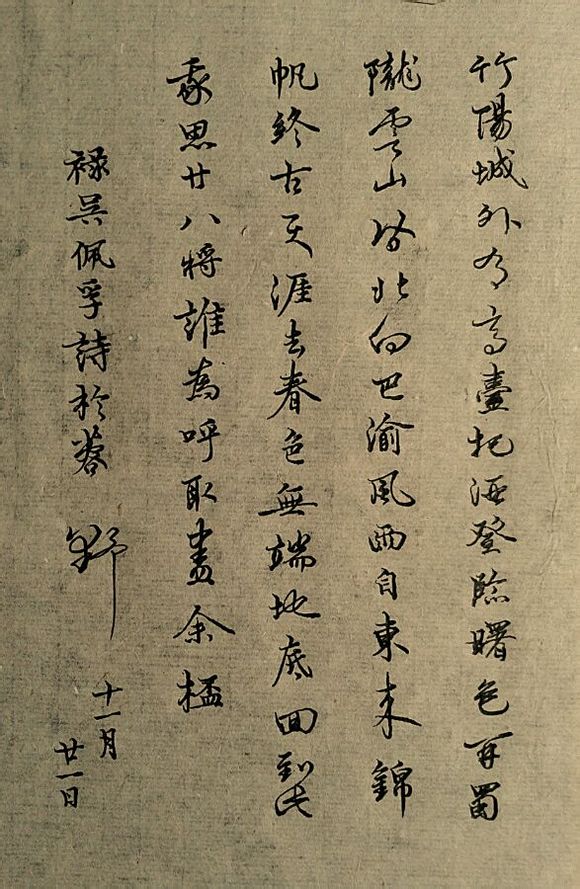 竹陽城外有高臺把酒登臨曙色開蜀
隴雲山皆北向巴渝風雨自東來錦
帆終古天涯去春色無端地底回到此
思廿八將誰為呼取盡余桮
祿吳佩孚詩於蓉 野
十一月
廿一日